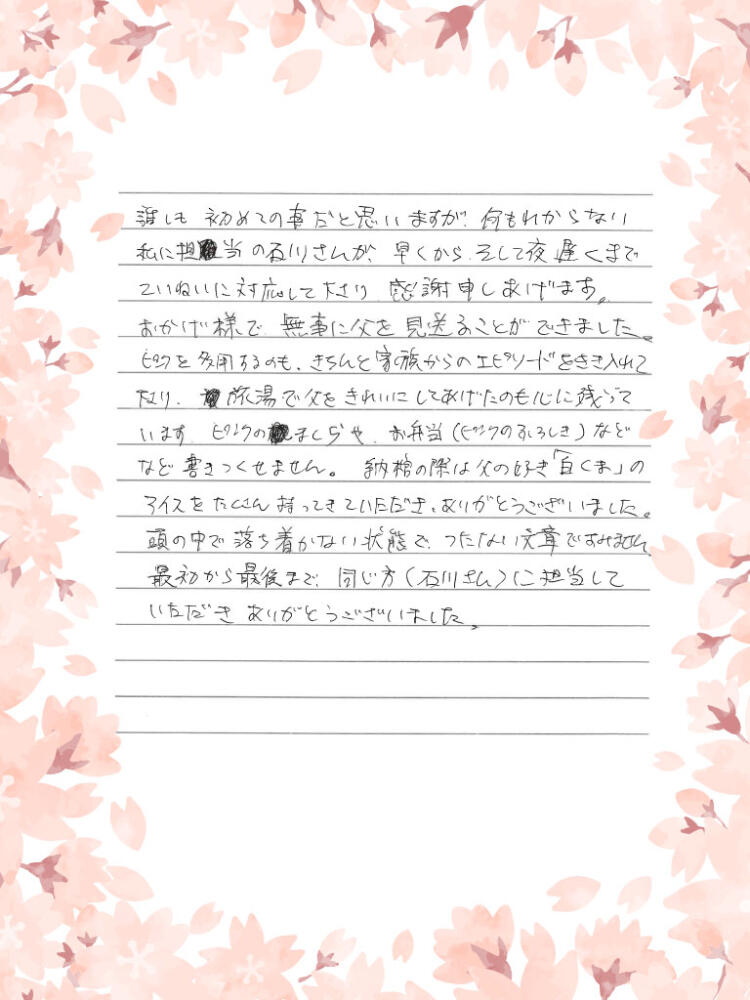 誰しも 初めての事だと思いますが、何もわからない
私に担当の石川さんが、早くから、そして夜遅くまで
ていねいに対応して下さり、感謝申しあげます。
おかげ様で、無事に父を見送ることができました。
ピンクを多用するのも、きちんと家族からのエピソードをきき入れて
下さり、旅湯で父をきれいにしてあげたのも心に残って
います。ピンクのまくらや、お弁当(ピンクのふろしき)など
など書きつくせません。納棺の際は父の好き「白くま」の
アイスをたくさん持ってきていただき、ありがとうございました。
頭の中で落ち着かない状態で、つたない文章ですみません
最初から最後まで、同じ方(石川さん)に担当して
いただき ありがとうございました。